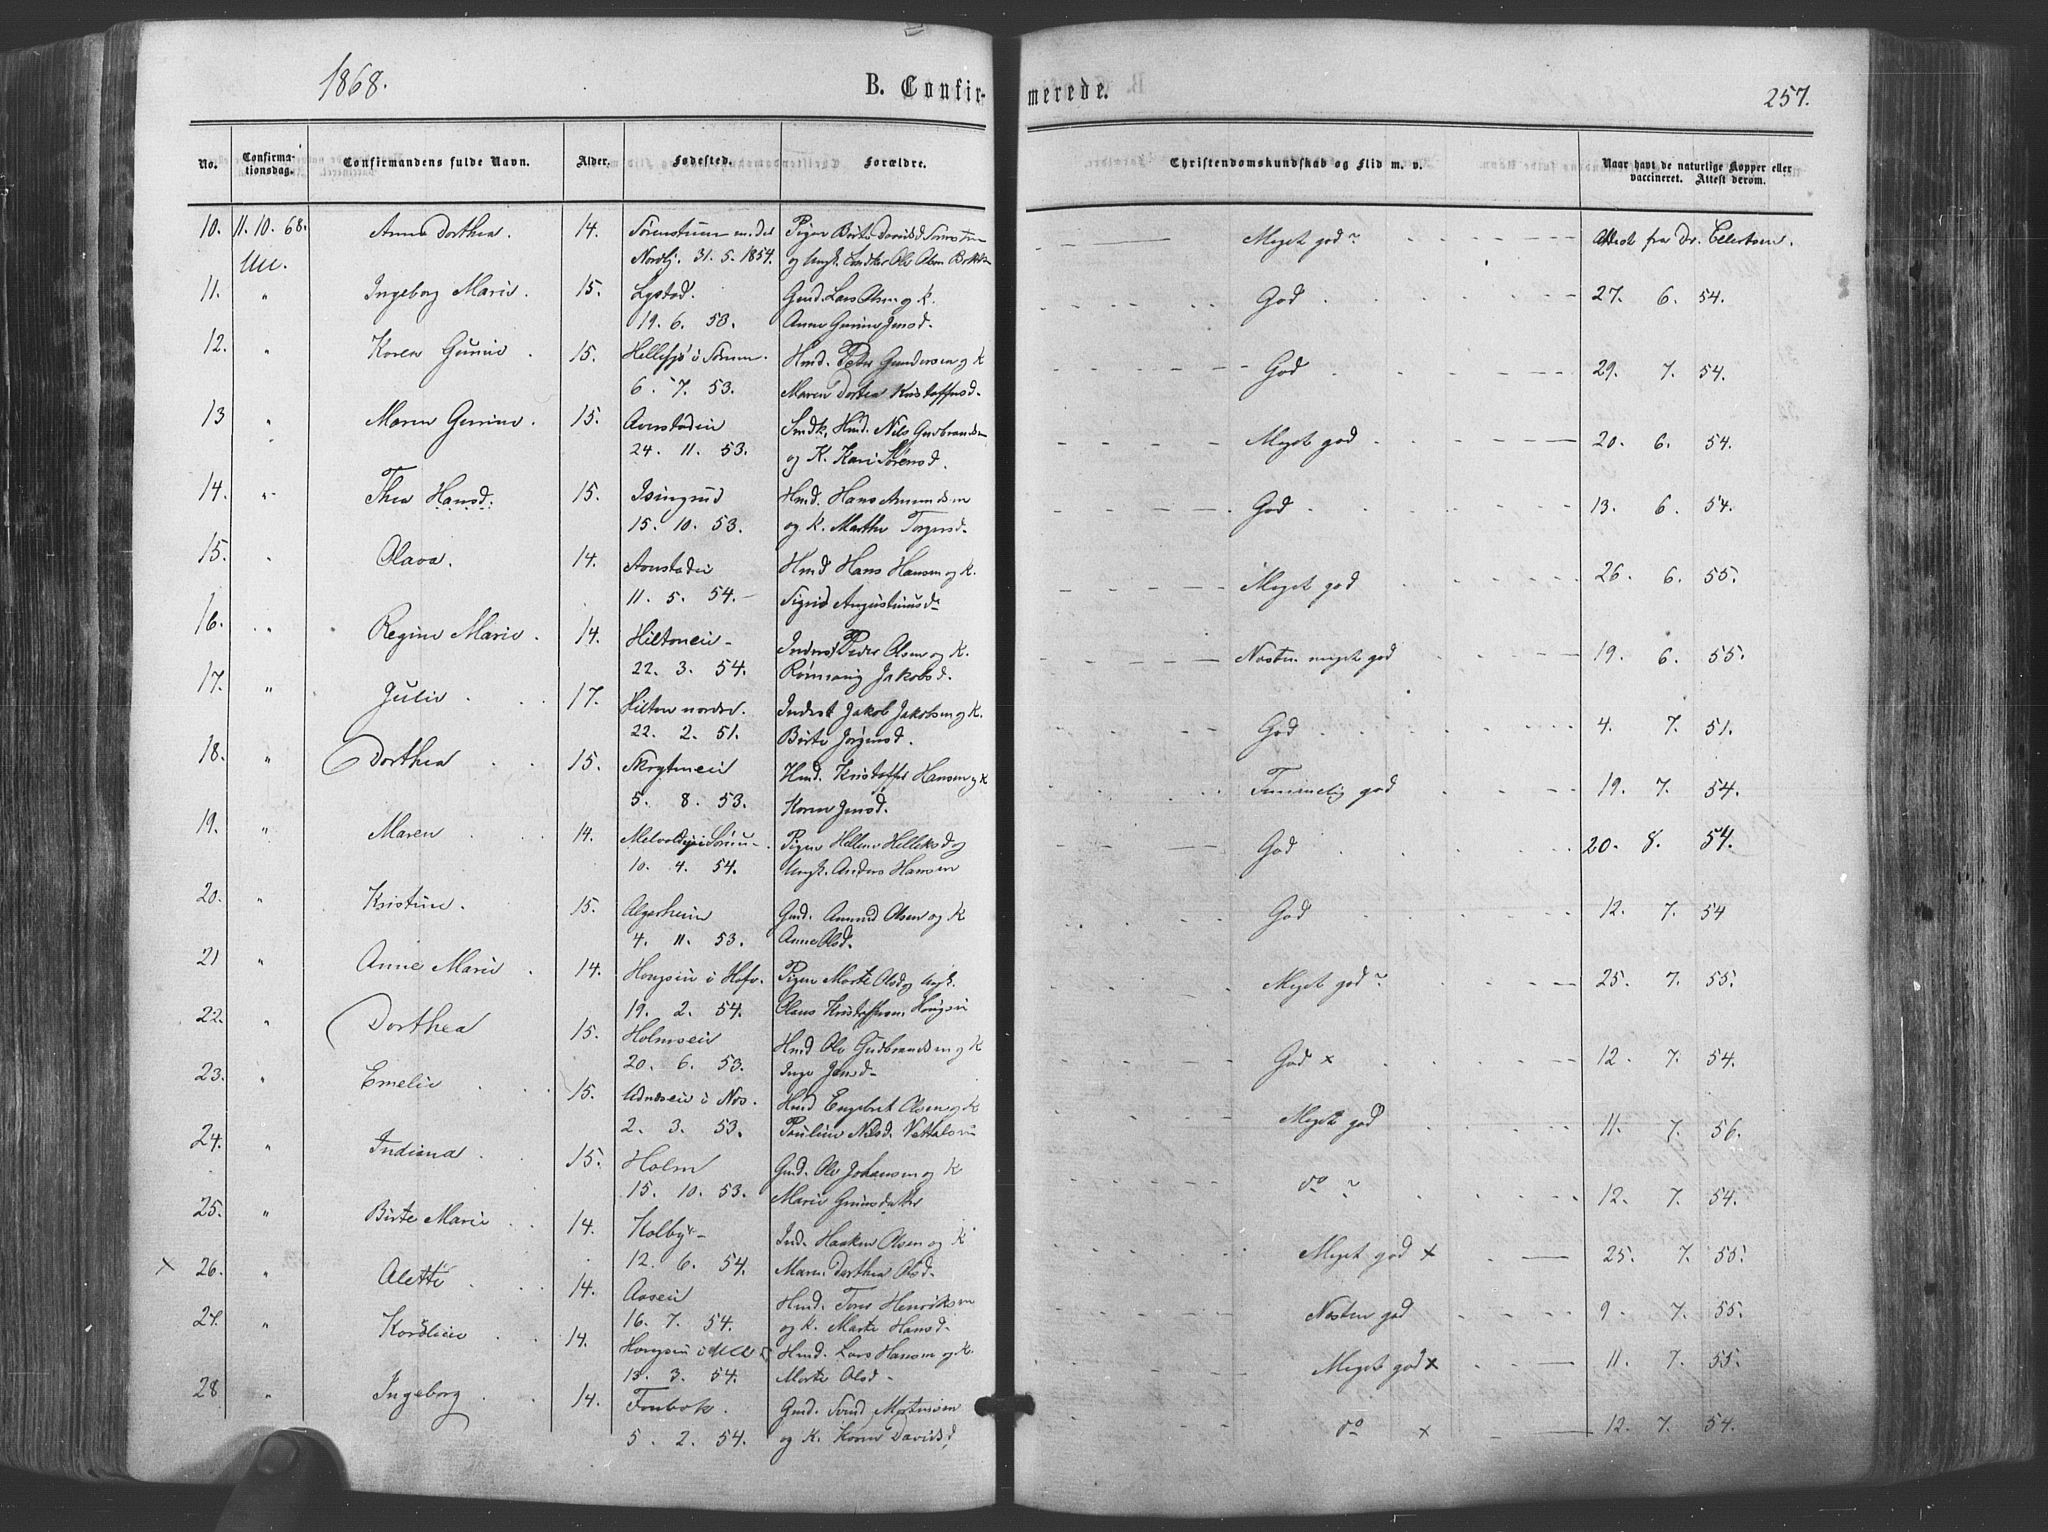 1868.
B. Confirmerede.
257.
No. Confirmationsdag. Confirmandens fulde Navn. Alder. Fødested. Forældre. Christendomskundskab og Flid m. v. Naar havt de naturlige Kopper eller vaccineret. Attest derom.
10. 11. 10. 68. Anne Dorthea. 14. Pigen Birte Davidsd. Meget god Attest fra Dr.
Ull. Nordbj. 31. 5. 1854. og Ungk. Ole Olsen
11. " Ingeborg Marie. 15. Lystad. Gmd. Lars Olsen og K. God 27. 6. 54.
19. 6. 53. Anne Gurine Jensd.
12. " Karen Gurine 15. Hellesjø i Sørum. Hmd. Peder Gundersen og K God 29. 7. 54.
6. 7. 53. Maren Dortea Kristoffersd.
13 " Maren Gurine. 15. Hmd. Nils Gudbrandsen Meget god 20. 6. 54.
24. 11. 53. og K. Kari Sørensd.
14. " Thea Hansd. 15. Isingrud Hmd. Hans Amundsen God 13. 6. 54.
15. 10. 53. og K. Marthe Torgersd.
15. " Olava. 14. Hmd Hans Hansen og K. Meget god 26. 6. 55.
11. 5. 54. Sigrid Augustinusd.
16. " Regine Marie. 14. Hiltoneie Inderst Peder Olsen og K. Næsten meget god 19. 6. 55.
22. 3. 54. Jakobsd.
17. " Julie 17. Hilton nordre. Inderst Jakob Jakobsen og K. God 4. 7. 51.
22. 2. 51. Birte Jørgensd.
18. " Dorthea 15. Hmd. Kristoffer Hansen og K Temmelig god 19. 7. 54.
5. 8. 53. Karen Jensd.
19. " Maren 14. Pigen Hellene Helleksd og God 20. 8. 54.
10. 4. 54. Ungk. Anders Hansen
20. " Kristine. 15. Algerheim Gmd. Amund Olsen og K God 12. 7. 54
4. 11. 53. Anne Olsd.
21 " Anne Marie 14. Pigen Marte Olsd og Ungk. Meget god 25. 7. 55.
19. 2. 54. Olaus Kristoffersen
22. " Dorthea 15. Holmseie Hmd Ole Gudbrandsen og K God x 12. 7. 54.
20. 6. 53. Inge Jensd.
23. " Emelie 15. i Nes. Hmd Engebret Olsen og K Meget god 11. 7. 56.
2. 3. 53. Pauline Nilsd.
24. " Indiana 15. Holm Gmd. Ole Johansen og K do 12. 7. 54.
15. 10. 53. Marie
25. " Birte Marie 14. Kolby Ind. Haaken Olsen og K Meget god x 25. 7. 55.
12. 6. 54. Maren Dorthea Olsd.
x 26. " Alette 14. Aaseie Hmd. Tores Henriksen Næsten god 9 7. 55.
16. 7. 54. og K. Marte Hansd.
27. " Karoline 14. Hmd. Lars Hansen og K. Meget god x 11. 7. 55.
13. 3. 54. Marte Olsd
28 " Ingeborg 14. Fonbæk. Gmd. Svend do x 12. 7. 54.
5. 2. 54. og K. Karen Davidsd.